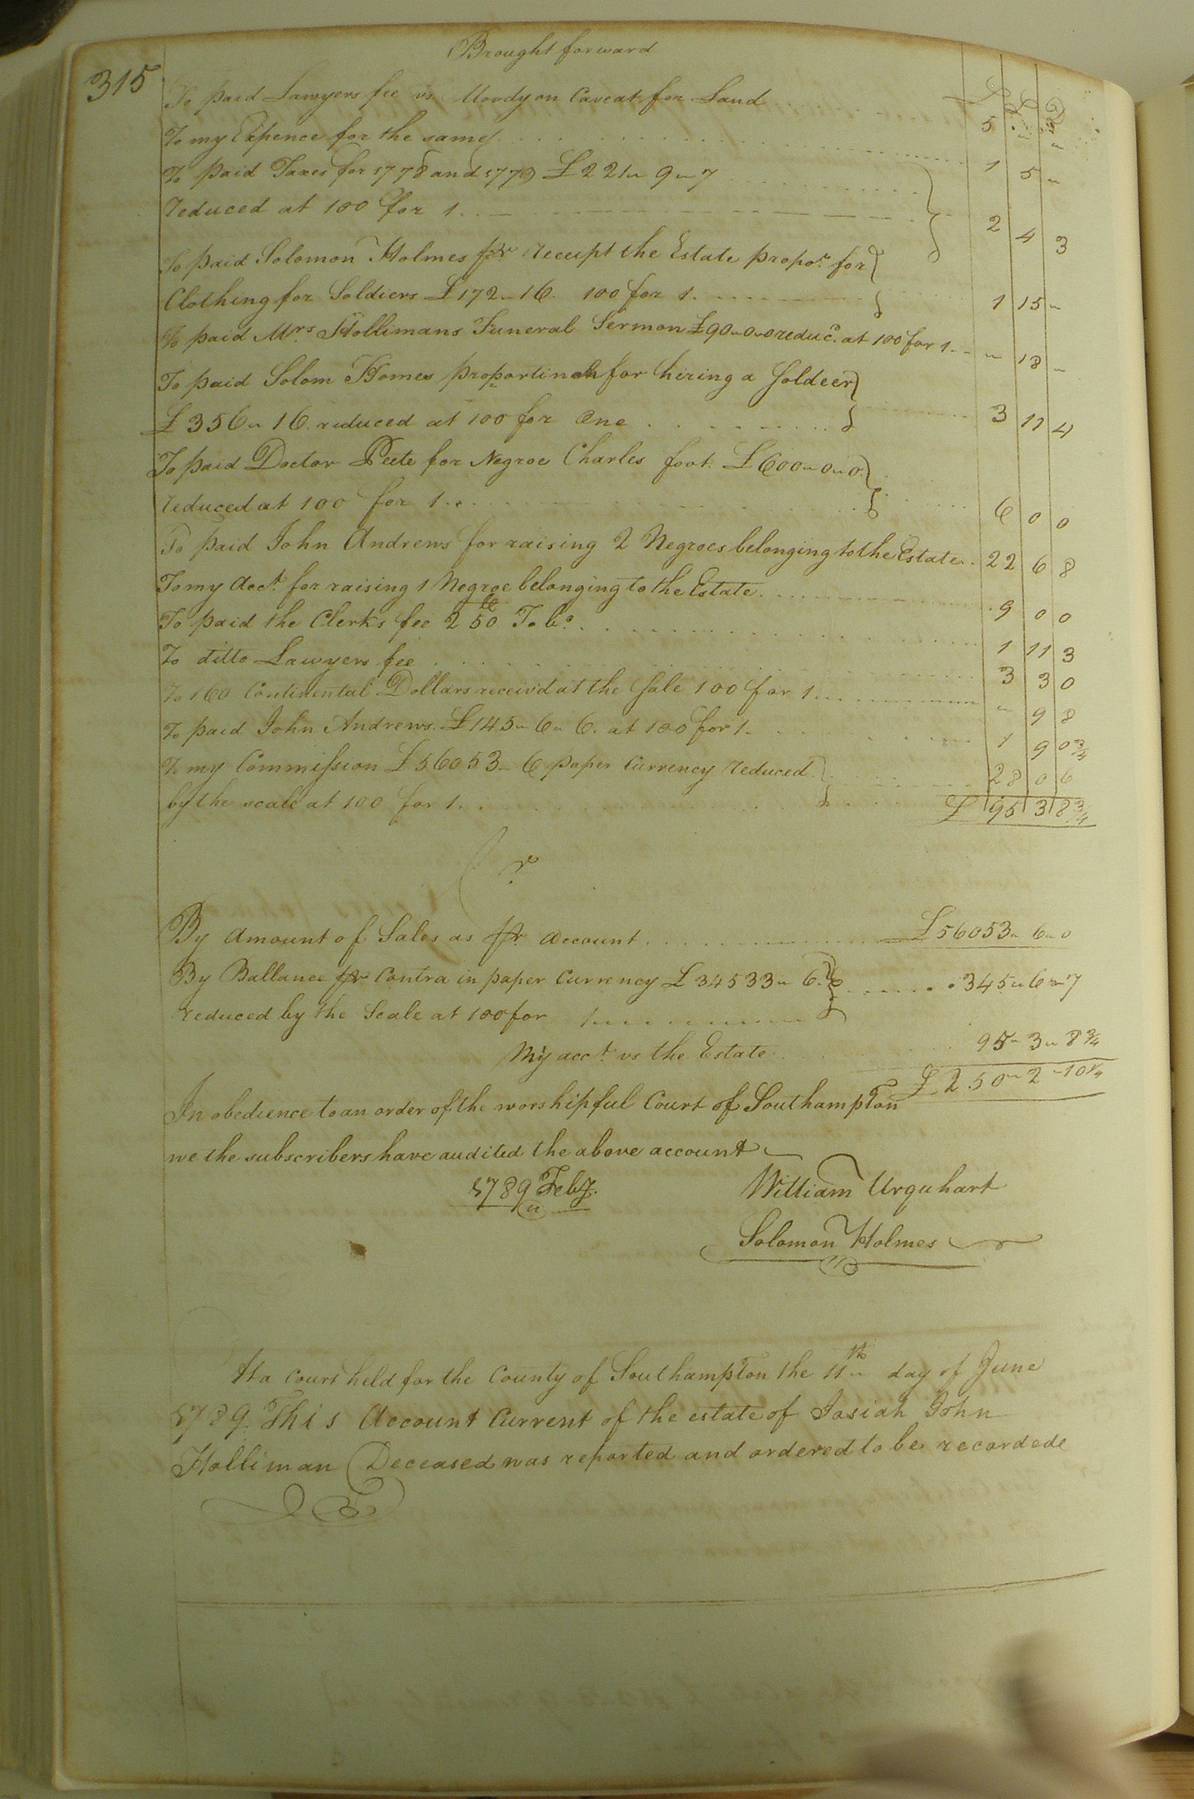 Brought forward
315
£ S D
To paid Lawyers fee vs Mordy on Caveat for Land 5 " "
To my Expence for the same 1 5 "
To paid Taxes for 1778 and 1779 £221 " 9 " 7
reduced at 100 for 1 2 4 3
To paid Solomon Holmes pr receipt the Estate propor. for
Clothing for Soldiers £172 " 16 100 for 1 1 15 "
To paid Mrs Hollimans Funeral Sermon £90 " 0 " 0 reduc.d at 100 for 1 " 18 "
To paid Solom Homes proportinoh for hiring a Soldeer
£356 " 16 reduced at 100 for One 3 11 4
To paid Doctor Peete for Negroe Charles foot. £600 " 0 " 0
reduced at 100 for 1 6 0 0
To paid John Andrews for raising 2 Negroes belonging to the Estate 22 6 8
To my Acct. for raising 1 Negroe belonging to the Estate 9 0 0
To paid the Clerks fee 250 lb Tobo. 1 11 3
To ditto Lawyers fee 3 3 0
To 160 Continental Dollars receiv'd at the Sale 100 for 1 " 9 8
To paid John Andrews £145 " 6 " 6. at 100 for 1 1 9 0 3/4
To my Commission £56053 " 6 paper Currency reduced
by the scale at 100 for 1 28 0 6
£ 95 3 8 3/4
Cr
By Amount of Sales as pr Account £56053 " 6 " 0
By Ballance pr Contra in paper Currency £34533 " 6 " 6
reduced by the Scale at 100 for 1 345 " 6 " 7
My acct. vs the Estate 95 " 3 " 8 3/4
£250 " 2 " 10 1/4
In obedience to an order of the worshipful Court of Southampton
we the subscribers have audited the above account
1789 Feby.
William Urquhart
Solomon Holmes
At a Court held for the County of Southampton the 11th day of June
1789. This Account Current of the estate of Josiah John
Holliman Deceased was reported and ordered to be recordede